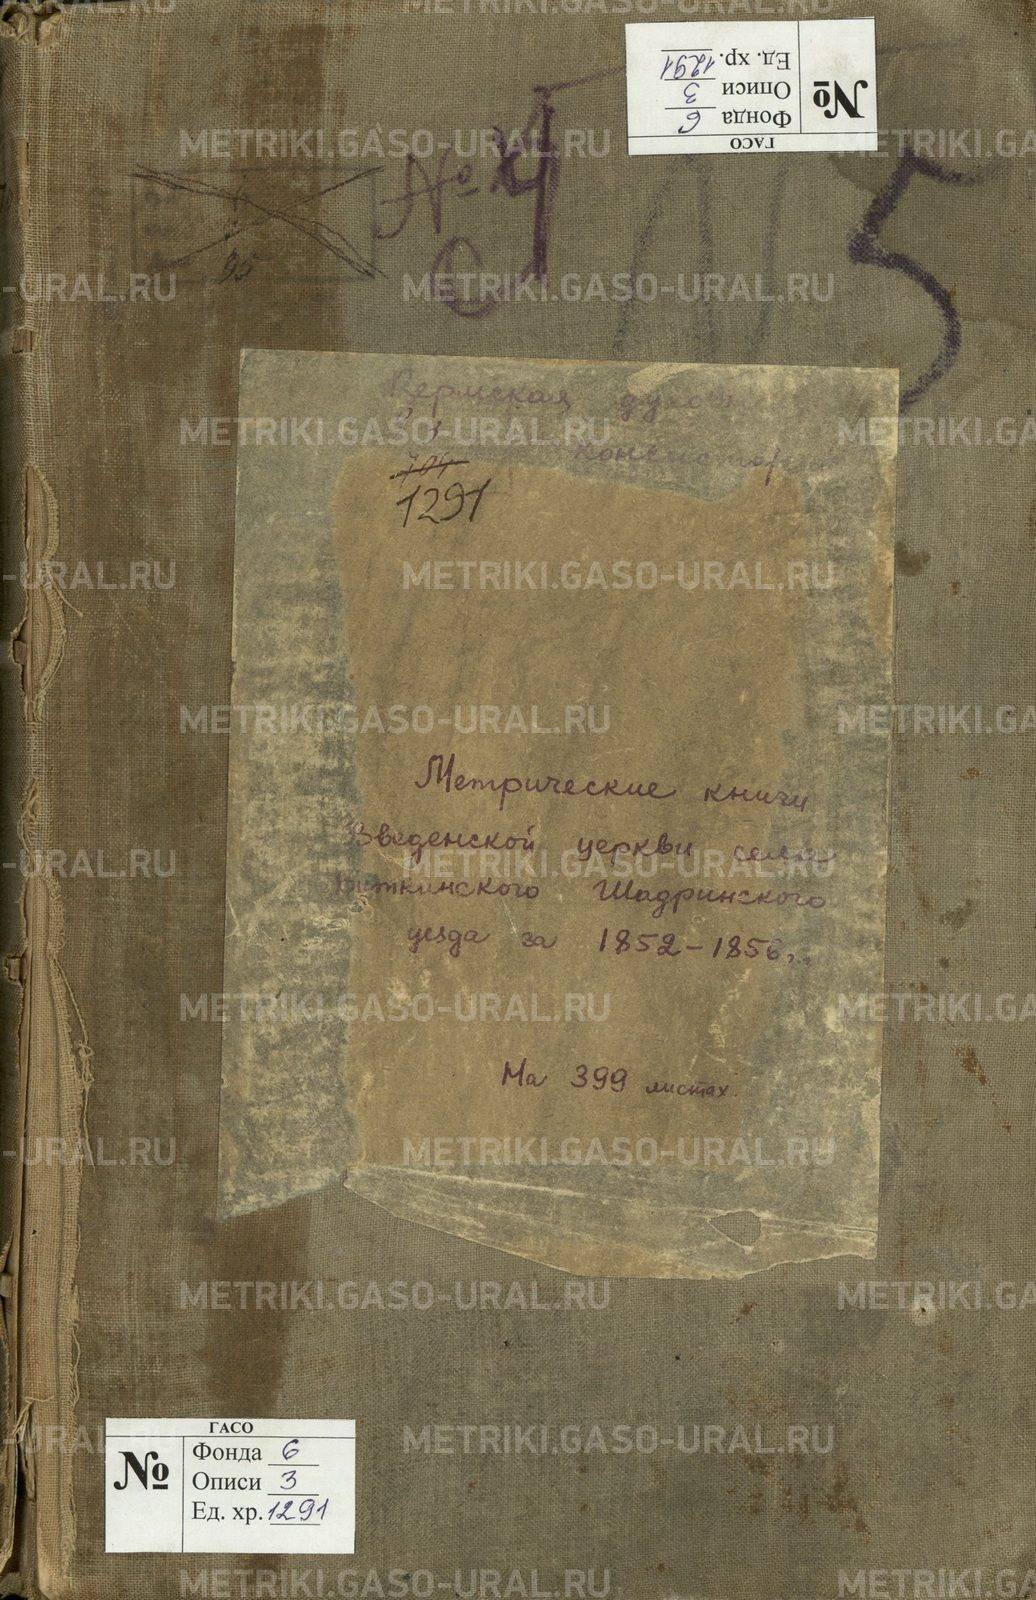 ГАСО
№
Фонда 6
Описи 3
Ед. хр. 1291
№
5
95
Пермская
консистория
1291
Метрические книги
Введенской церкви села
Шадринского
уезда за 1852-1856
На 399 листах.
ГАСО
№
Фонда 6
Описи 3
Ед. хр. 1291
METRIKI.GASO-URAL.RU